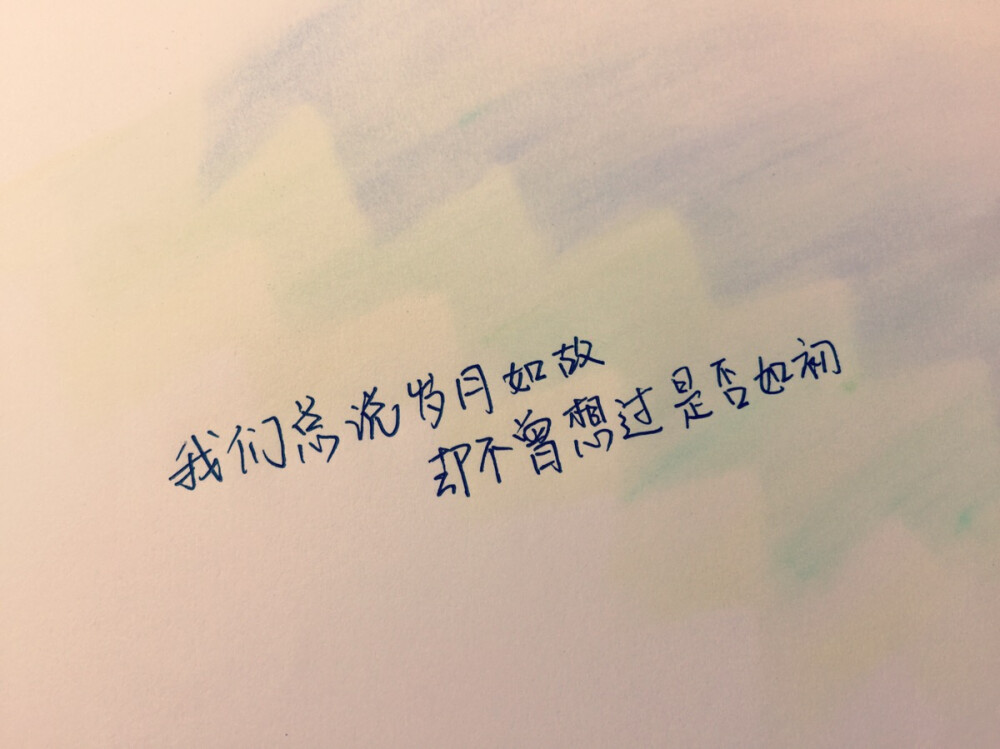 我们总说岁月如故
却不曾想过是否如初